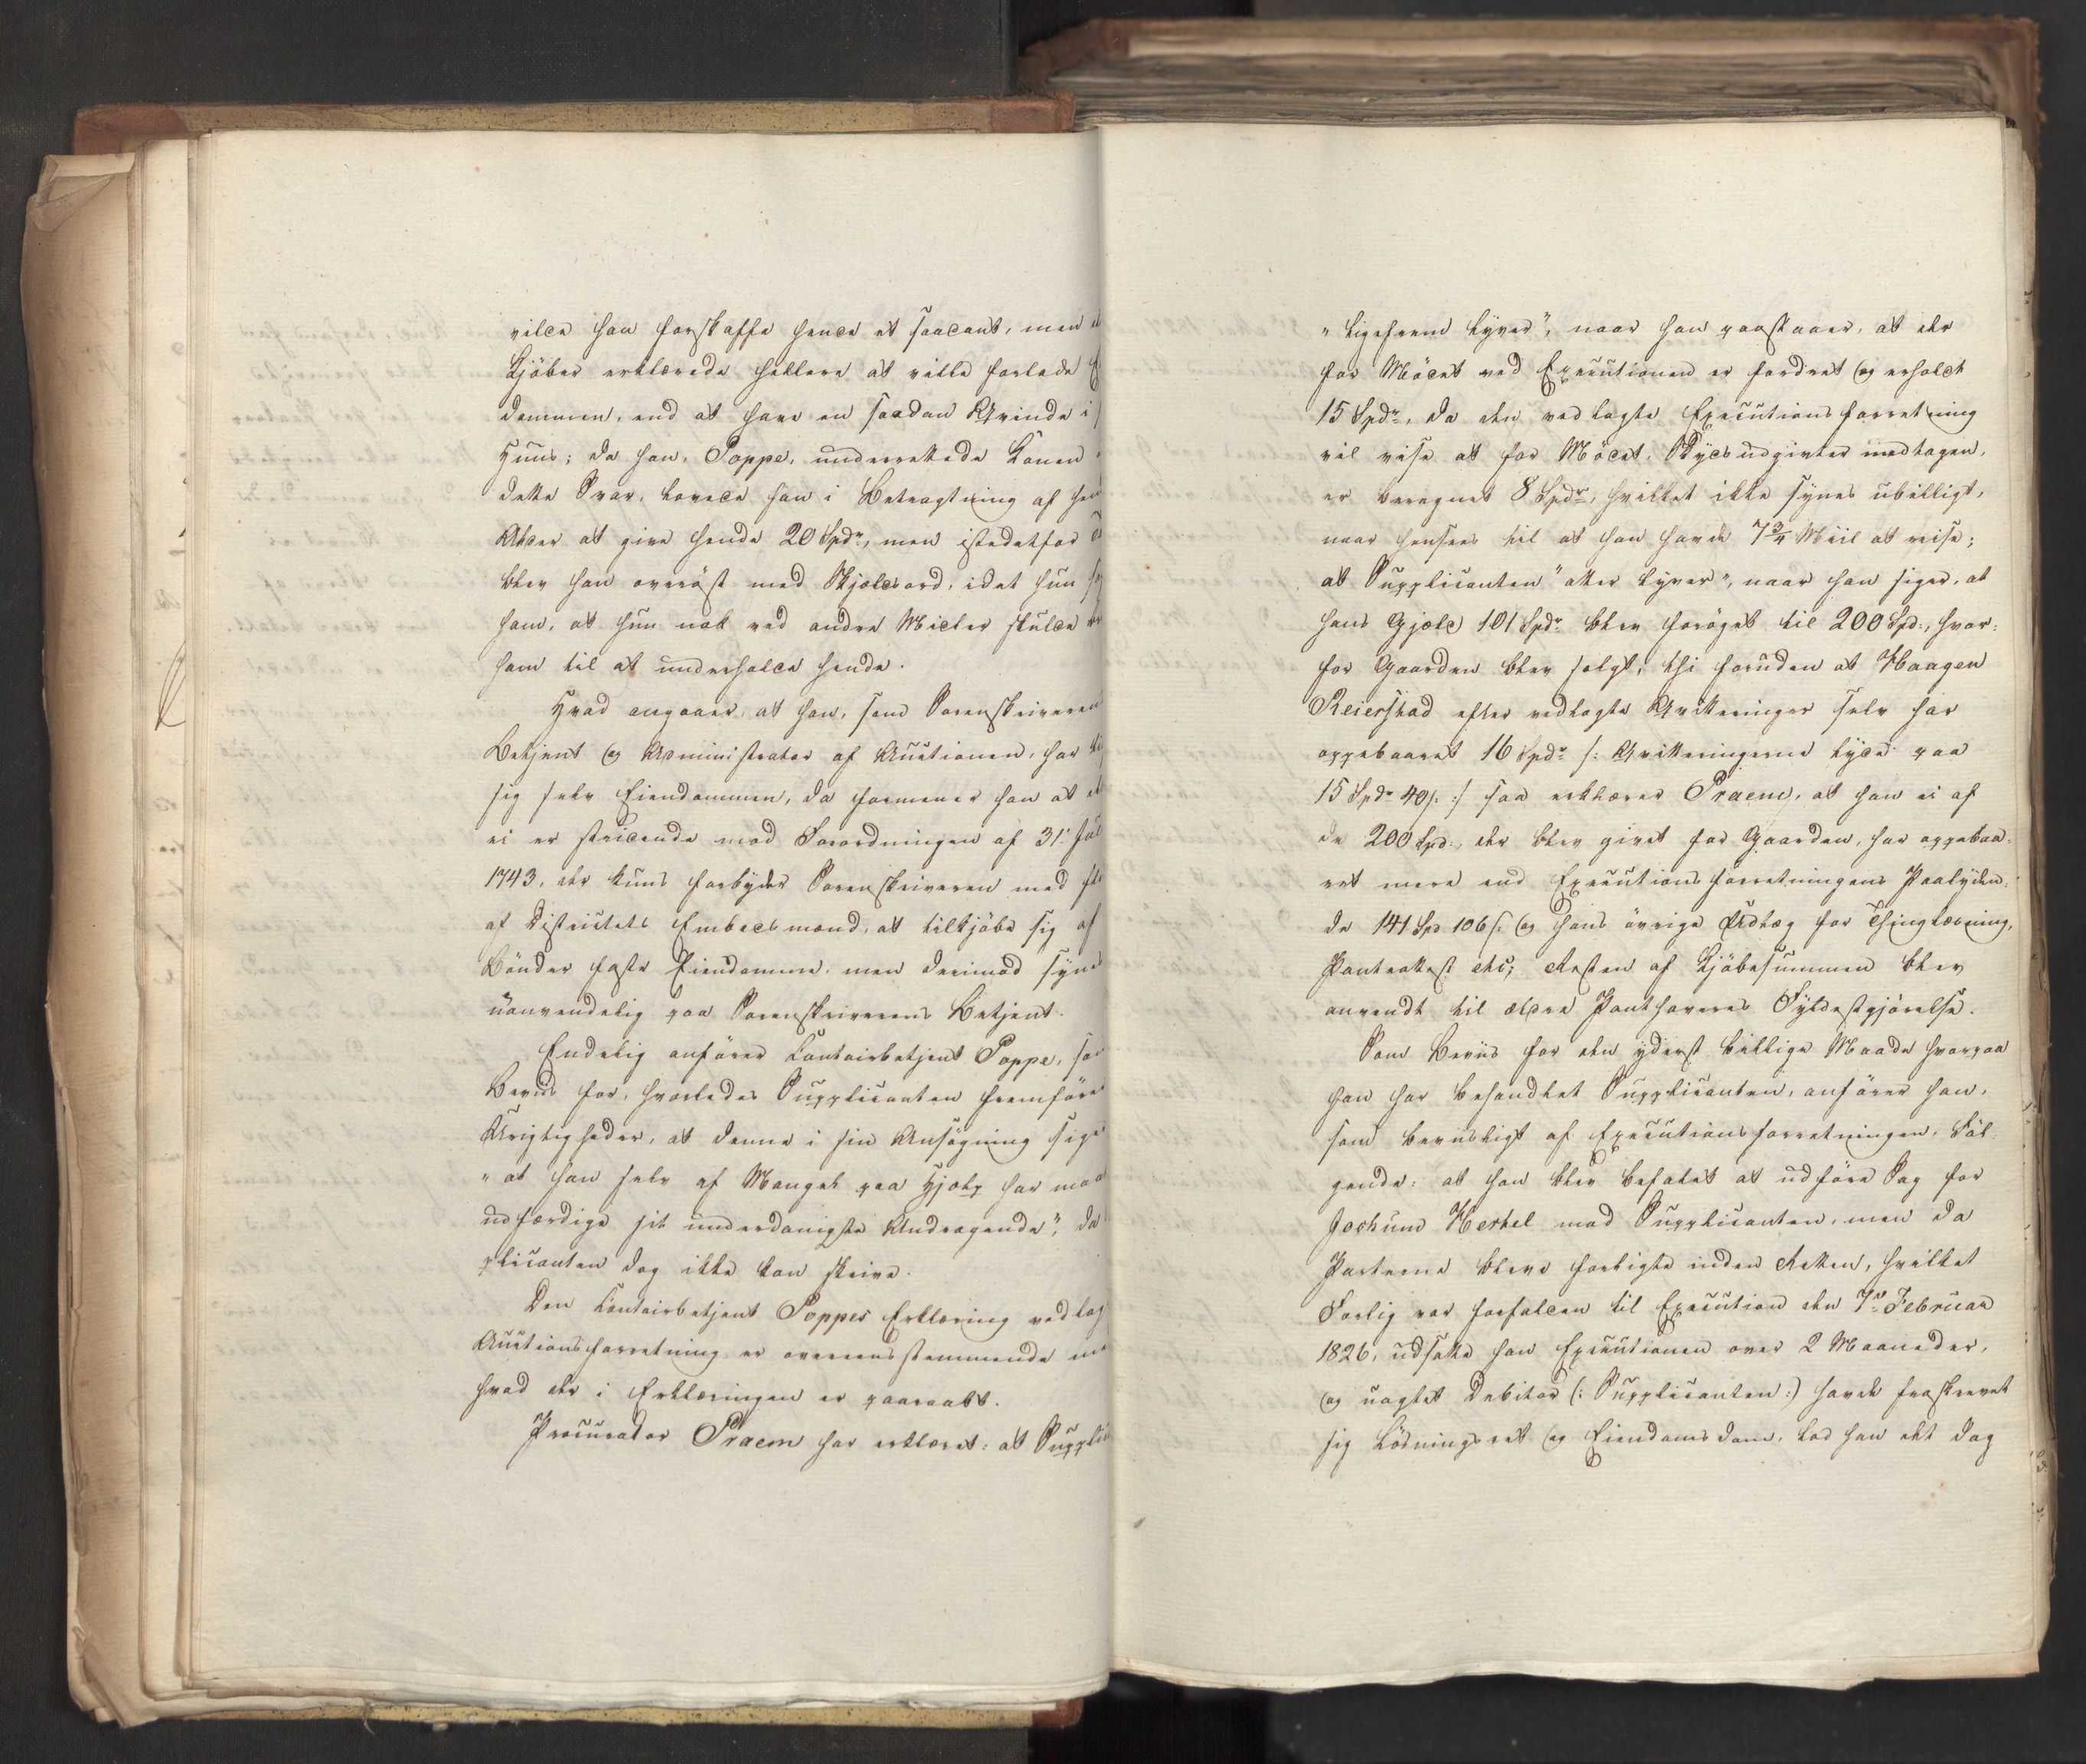 vilde han forskaffe hende et saadant, men
Kjöber erklærede hellere at ville forlade
dommen, end at have en saadan Qvinde i
Huus; da han, Poppe, underrettede Konen
dette Svar, lovede han i Betragtning af hen
Alder at give hende 20 Spdr, men istedetfor
blev han overöst med Skjældsord, idet hun
ham, at hun nok ved andre Midler skulde
ham til at underholde hende.
Hvad angaaer, at han, som Sorenskriveren
Betjent og Administrator af Auctionen, har
sig selv Eiendommen, da formener han at
ei er stridende mod Forordningen af 31. Jul
1743, der kuns forbyder Sorenskriveren med
af Districtets Embedsmænd, at tilkjöbe sig af
Bönder faste Eiendomme, men derimod synes
uanvendelig paa Sorenskriverens Betjent.
Endelig anförer Contoirbetjent Poppe, so
Beviis for, hvorledes Supplicanten fremförer
Urigtigheder, at denne i sin Ansögning siger
"at han selv af Mangel paa Hjælp har maa
udfærdige sit underdanigste Andragende", da
plicanten dog ikke kan skrive.
Den Contoirbetjent Poppes Erklæring vedlag
Auctionsforretning er overeensstemmende me
hvad der i Erklæringen er paaraabt.
Procurator Praem har erklæret: at Suppli
"ligefrem lyver", naar han paastaaer, at der
for Mödet ved Executionen er fordret og erholdt
15 Spdr, da den vedlagte Executionsforretning
vil vise at for Mödet, Skydsudgivter medtagen,
er beregnet 8 Spdr, hvilket ikke synes ubilligt,
naar hensees til at han havde 7 3/4 Miil at reise;
at Supplicanten "atter lyver", naar han siger, at
hans Gjæld 101 Spdr blev foröget til 200 Spd:, hvor=
for Gaarden blev solgt; thi foruden at Haagen
Reierstad efter vedlagte Qvitteringer selv har
oppebaaret 16 Spdr /: Qvitteringerne lyde paa
15 Spdr 40 s. :/ saa erklærer Praem, at han ei af
de 200 Spd:, der blev givet for Gaarden, har oppebaa=
ret mere end Executionsforretningens Paalyden=
de 141 Spd 106 s. og hans övrige Udlæg for Thinglæsning,
Panteattest etc; Resten af Kjöbesummen blev
anvendt til ældre Panthaveres Fyldestgjörelse.
Som Beviis for den yderst billige Maade hvorpaa
han har behandlet Supplicanten, anförer han,
som beviisligt af Executionsforretningen, Föl
gende: at han blev befalet at udföre Sag for
Jochum Hertel mod Supplicanten, men da
Parterne bleve forligte inden Retten, hvilket
Forlig var forfalden til Execution den 7de Februar
1826, udsatte han Executionen over 2 Maaneder,
og uagtet Debitor (: Supplicanten :) havde fraskrevet
sig Lösningsret og Eiendomsdom, lod han det dog